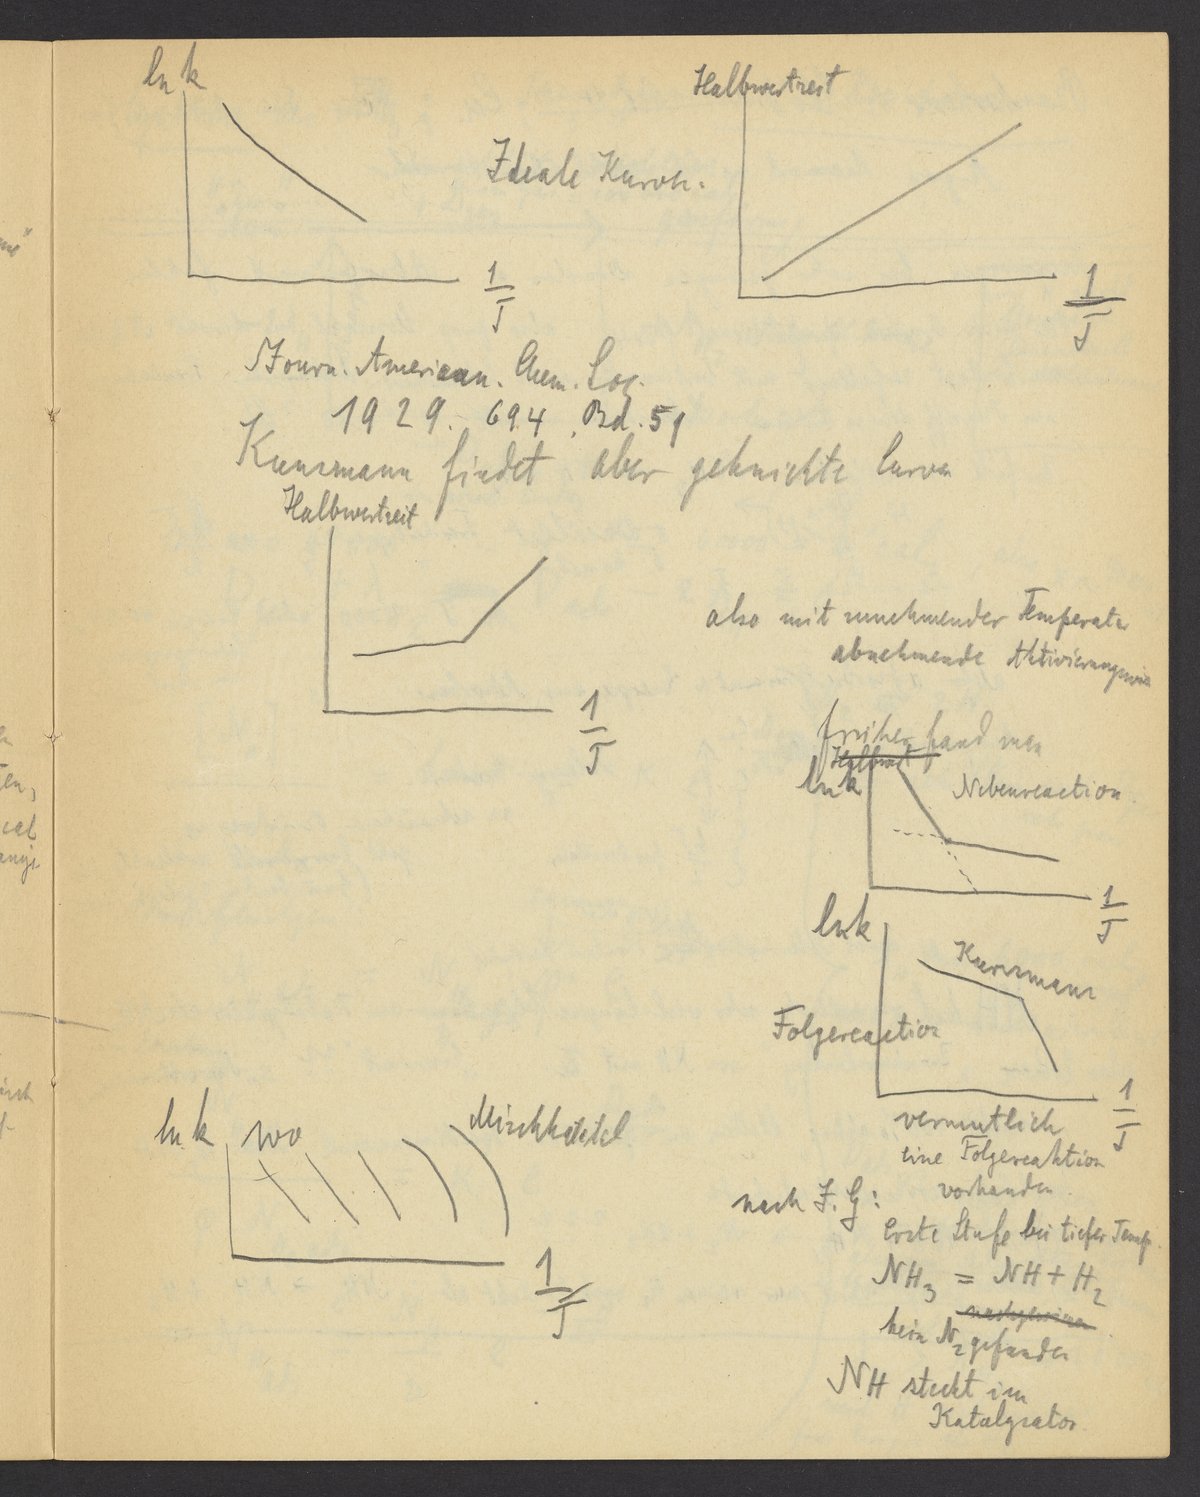 ln k
Halbwertzeit
Ideale Kurve.
1
T
1
T
Journ. American. Chem. Soc.
1929. 694. Bd. 51
Kunsmann findet aber geknickte Curve
Halbwertzeit
1
T
also mit zunehmender Temperatur
abnehmende Aktivierungswä
früher fand man
ln k
Nebenreaction
1
T
ln k
Kunsmann
Folgereaction
1
T
vermutlich
eine Folgereaktion
vorhanden.
ln k
wo
Mischkatal
1
T
nach I. G:
Erste Stufe bei tiefer Temp.
NH3 = NH + H2
kein N2 gefunden
NH steckt im
Katalysator